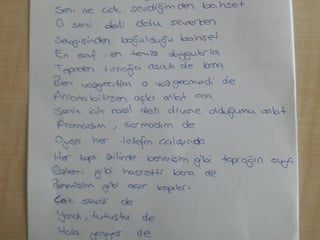 Seni ne çok sevdiğimden bahset
O seni deli dolu severken
Sevgisinden boğulduğu bahset
En saf, en temiz duygularla
Tepeden tırnağa aşıktı de bana
Ben vazgeçtim o vazgeçmedi de
Anlatabilirsen aşkı anlat ona
Senin için nasıl deli divane olduğumu anlat
Aramadım, sormadım de
Oysa her telefon çalışında
Her kapı zilinde benmişim gibi toprağın suya
Özlemi gibi hasretti bana de
Benmişim gibi açar kapıları
Çok sevdi de
Yandı, tutuştu de
Hala yanıyor de